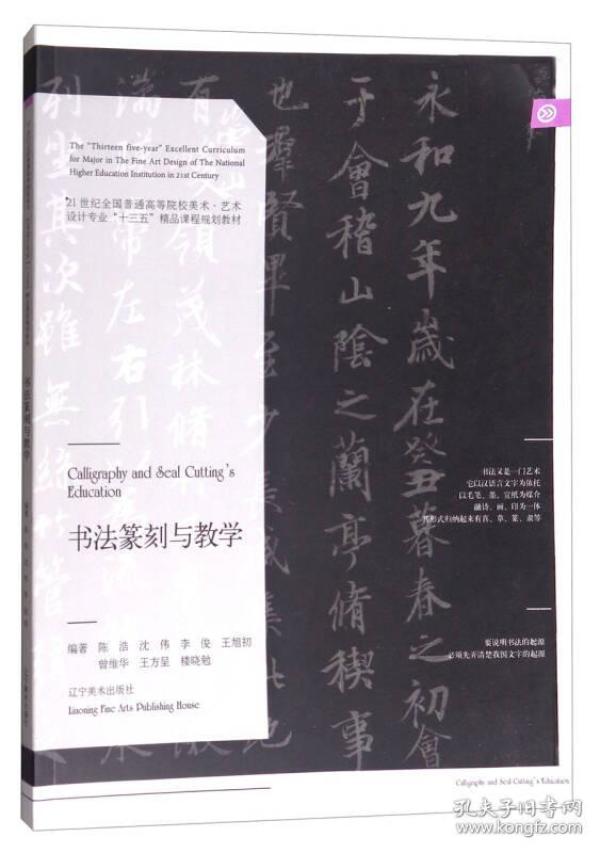 The "Thirteen five-year" Excellent Curriculum
for Major in The Fine Art Design of The National
Higher Education Institution in 21st Century
21世纪全国普通高等院校美术·艺术
设计专业"十三五"精品课程规划教材
Calligraphy and Seal Cutting's
Education
书法篆刻与教学
编著 陈浩 沈伟 李俊 王旭初
曾维华 王方呈 楼晓勉
辽宁美术出版社
Liaoning Fine Arts Publishing House
永和九年歲在癸丑暮春之初會
于會稽山陰之蘭亭脩稧事
也羣賢畢至少長咸集此地
有崇山峻領茂林脩
湍帶左右引
列坐其次雖無絲竹管
书法又是一门艺术
它以汉语言文字为依托
以毛笔、墨、宣纸为媒介
融诗、画、印为一体
其形式归纳起来有真、草、篆、隶等
要说明书法的起源
必须先弄清楚我国文字的起源
Calligraphy and Seal Cutting's Education
书法篆刻与教学
孔夫子旧书网
www.kongfz.com